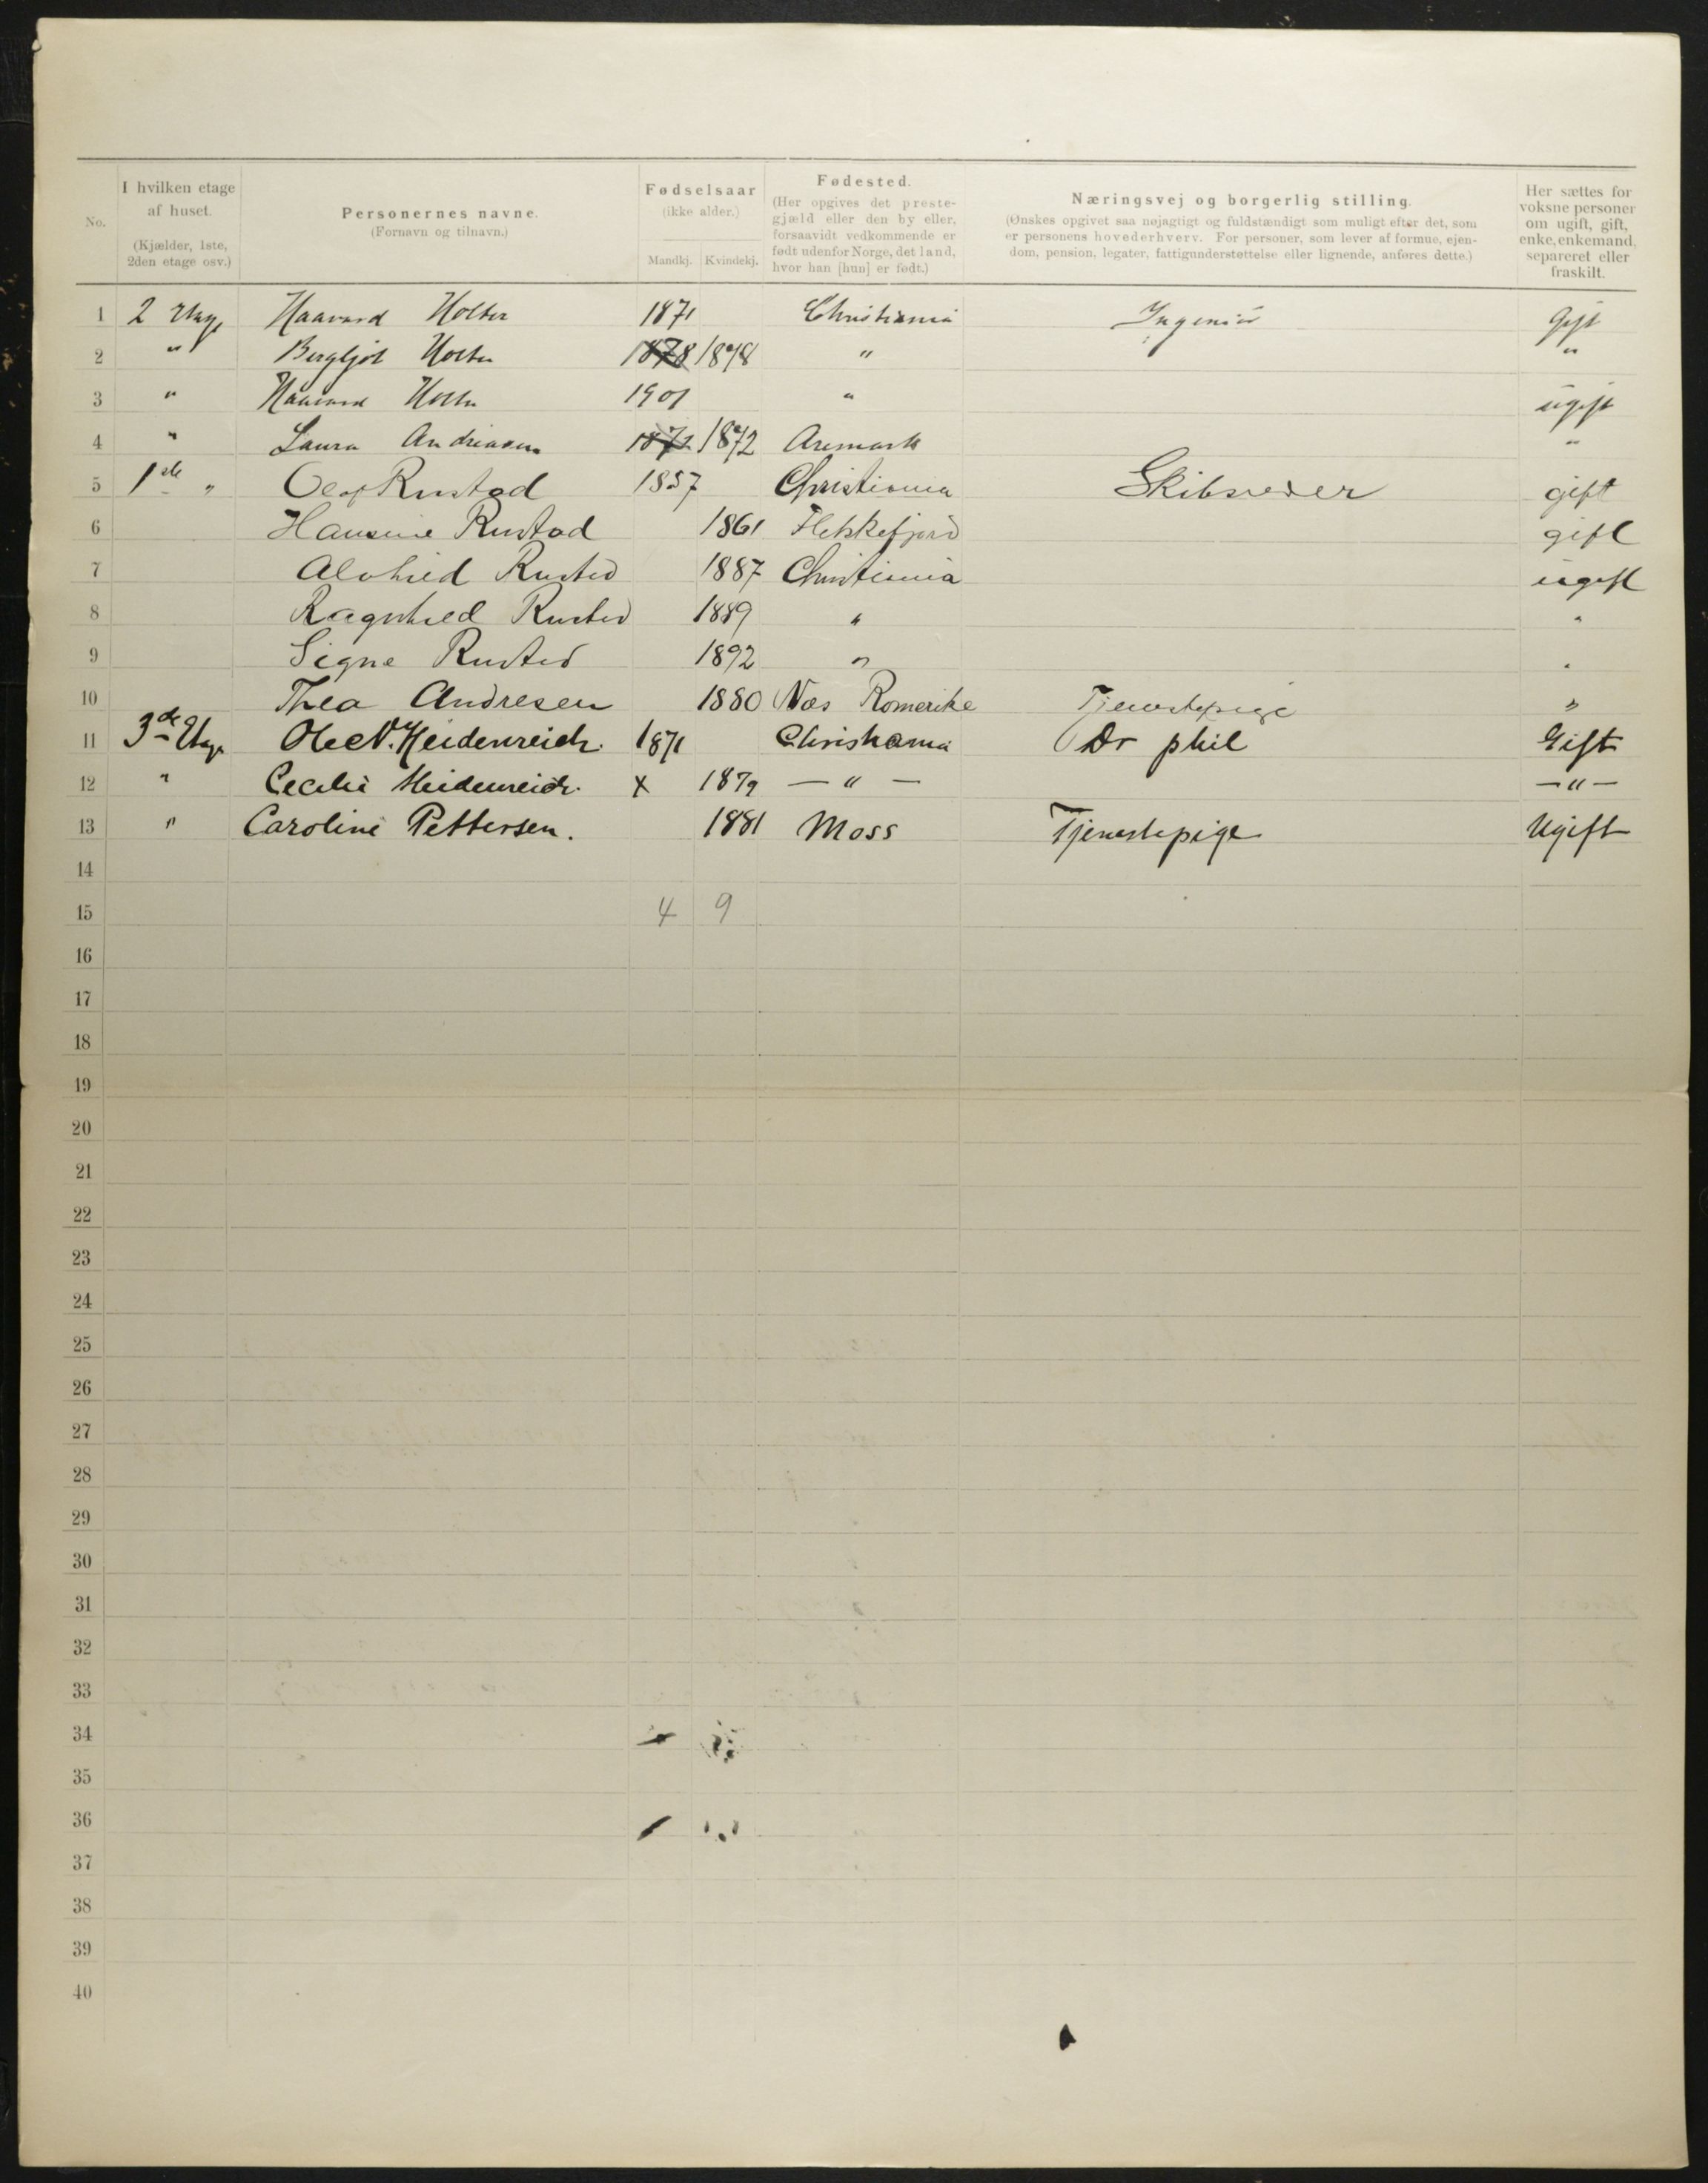 No.
I hvilken etage af huset.
(Kjælder, 1ste, 2den etage osv.)
Personernes navne.
(Fornavn og tilnavn.)
Fødselsaar
(ikke alder.)
Mandkj. Kvindekj.
Fødested.
(Her opgives det preste-
gjæld eller den by eller,
forsaavidt vedkommende er
født udenfor Norge, det land,
hvor han [hun] er født.)
Næringsvej og borgerlig stilling.
(Ønskes opgivet saa nøjagtigt og fuldstændigt som muligt efter det, som
er personens hovederhverv. For personer, som lever af formue, ejen-
dom, pension, legater, fattigunderstøttelse eller lignende, anføres dette.)
Her sættes for
voksne personer
om ugift, gift,
enke, enkemand,
separeret eller
fraskilt.
1 2 Etage Haavard Holter 1871 Christiania Ingeniør Gift
2 " Bergljot Holter 1878 1878 " "
3 " Haavard Holter 1901 " ugift
4 " Laura Andreasen 1872 1872 Aremark "
5 1ste " Olaf Rustad 1857 Christiania Skibsreder gift
6 Hansine Rustad 1861 Flekkefjord gift
7 Alvhild Rustad 1887 Christiania ugift
8 Ragnhild Rustad 1889 " "
9 Signe Rustad 1892 " "
10 Thea Andresen 1880 Næs Romerike Tjenestepige "
11 3de Etage Ole N. Heidenreich. 1871 Christiania Dr phil Gift
12 " Cecilie Heidenreich. x 1879 — " — — " —
13 " Caroline Pettersen. 1881 Moss Tjenestepige Ugift
14
15 4 9
16
17
18
19
20
21
22
23
24
25
26
27
28
29
30
31
32
33
34
35
36
37
38
39
40